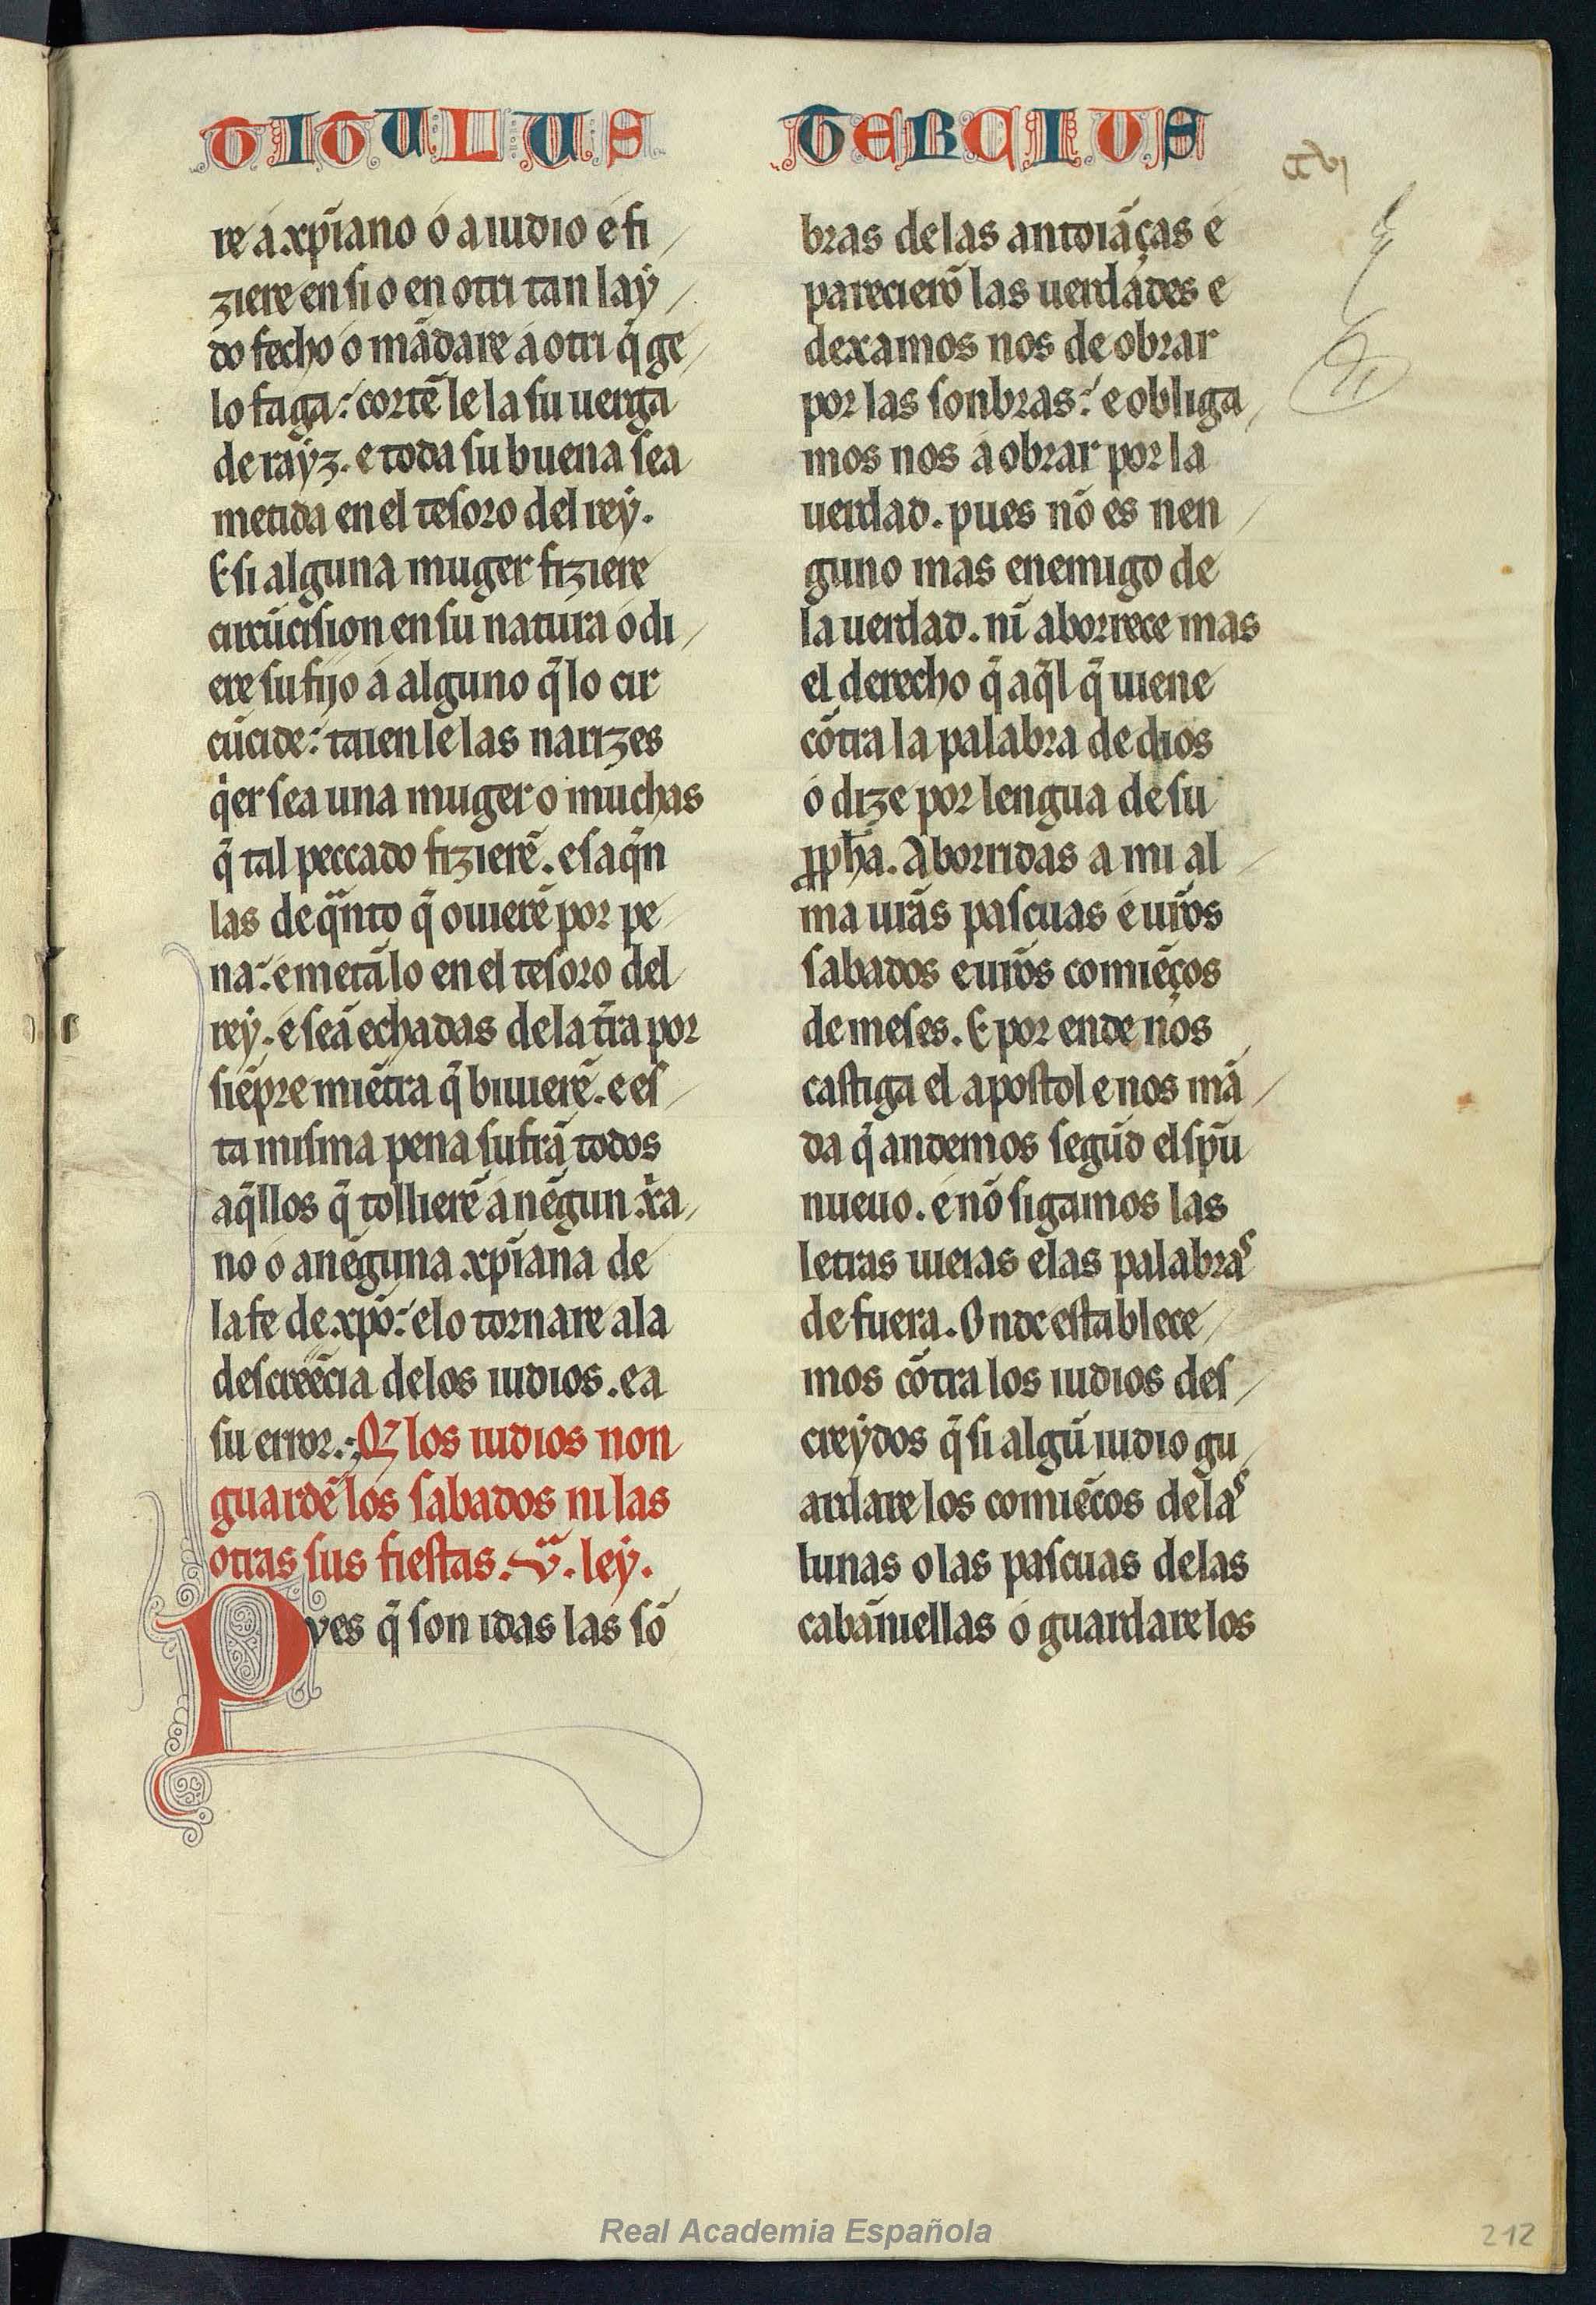 TITULUS TERCIUS
ccvi
re á xp̃iano ó a iudio e fi
ziere en si o en otri tan laẏ
do fecho o mãdare á otri q̃ ge
lo faga: cortẽ le la su uerga
de raẏz. e toda su buena sea
metida en el tesoro del reẏ.
E si alguna muger fiziere
circũcision en su natura ó di
ere su fijo á alguno q̃ lo cir
cũcide: taien lẽ las narizes
q̇er sea una muger o muchas
q̃ tal peccado fizierẽ. e saq̃n
las de q̃nto q̃ ouierẽ por pe
na: e metãlo en el tesoro del
reẏ. e seã echadas de la tr̃ra por
siẽpre miẽtra q̃ biuierẽ. e es
ta misma pena sufrã todos
aq̃llos q̃ tollierẽ á nẽgun xr̃a
no ó a nẽguna xp̃iana de
la fe de xp̃o: e lo tornare a la
descreẽcia de los iudios. e a
su error. Q̃ los iudios non
guardẽ los sabados ni las
otras sus fiestas. .v.ª leẏ.
Pves q̃ son idas las sõ
bras de las antoiãças e
parecierõ las uerdádes e
dexamos nos de obrar
por las sonbras: e obliga
mos nos á obrar por la
uerdad. pues nõ es nen
guno mas enemigo de
la uerdad. nĩ aborrece mas
el derecho q̃ aq̃l q̃ uiene
cõtra la palabra de dios
ó dize por lengua de su
ꝓpħa. Aborridas a mi al
ma ur̃as pascuas e ur̃os
sabados e ur̃os comiẽços
de meses. E por ende nos
castiga el apostol e nos mã
da q̃ andemos segũd el sp̃u
nueuo. e nõ sigamos las
letras uieias e las palabras
de fuera. Onde establece
mos cõtra los iudios des
creẏdos q̃ si algũ iudio gu
ardare los comiẽcos de las
lunas o las pascuas de las
cabãnuellas ó guardare los
Real Academia Española
212